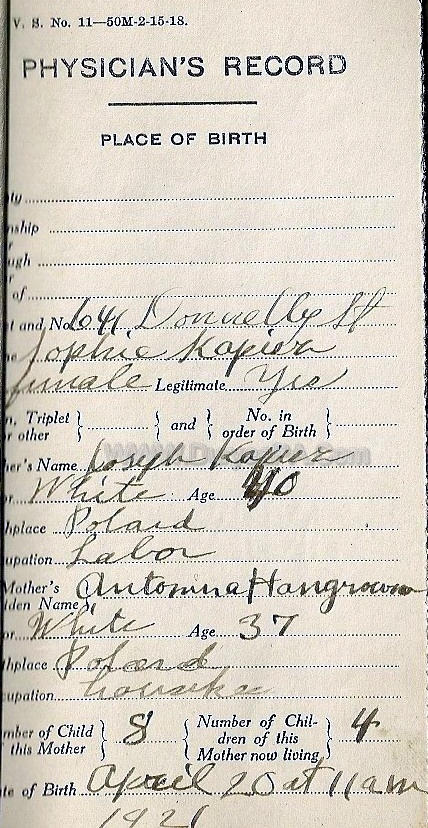 V. S. No. 11—50M-2-15-18.
PHYSICIAN'S RECORD
PLACE OF BIRTH
ty
nship
r
ugh
r
of
t and No. 641 Donnelly St
me Sophie Kapica
female Legitimate Yes
n, Triplet } and { No. in
r other order of Birth }
her's Name Joseph Kapica
or White Age 40
hplace Poland
upation Labor
Mother's Antonina
iden Name
or White Age 37
hplace Poland
cupation
mber of Child } 8 { Number of Chil-
this Mother dren of this } 4
Mother now living
te of Birth April 20 at 11 am
1921